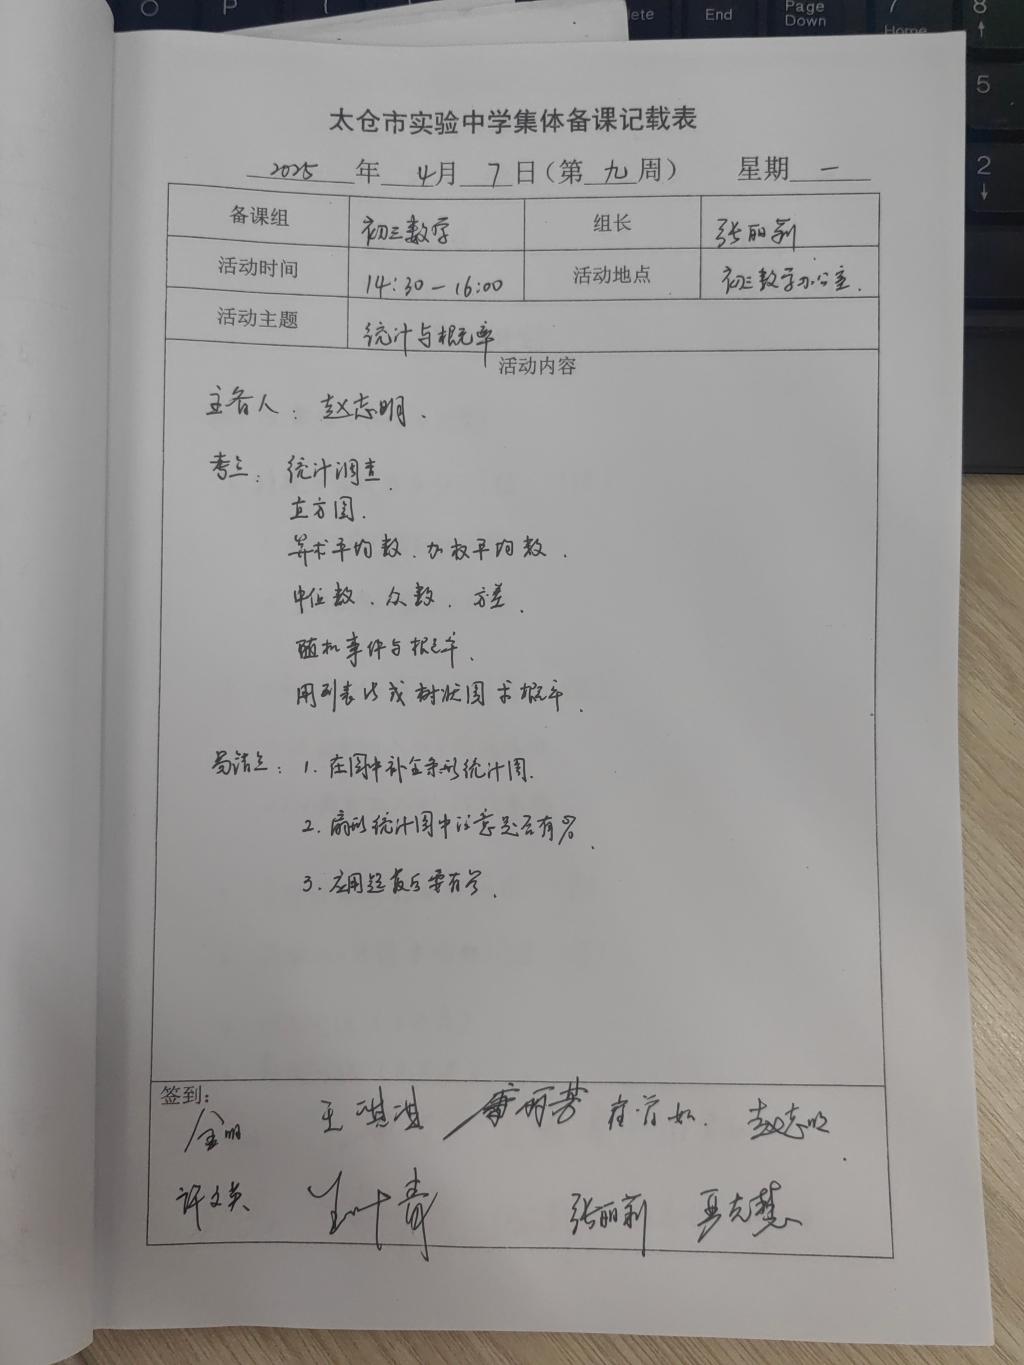 太仓市实验中学集体备课记载表
2025 年 4月 7 日(第 九 周) 星期 一
备课组 初三数学 组长 张丽莉
活动时间 14:30-16:00 活动地点 初三数学办公室.
活动主题 统计与概率
活动内容
主备人: 赵志明.
考点: 统计调查.
直方图.
算术平均数、加权平均数.
中位数、众数、方差.
随机事件与概率.
用列表法或树状图求概率.
易错点: 1. 在图中补全条形统计图.
2. 扇形统计图中注意是否有%.
3. 应用题最后要有答.
签到:
金明 王淇淇 赵志明
许文英 张丽莉
O P
End
Page
Down
Home
7
8
5
2